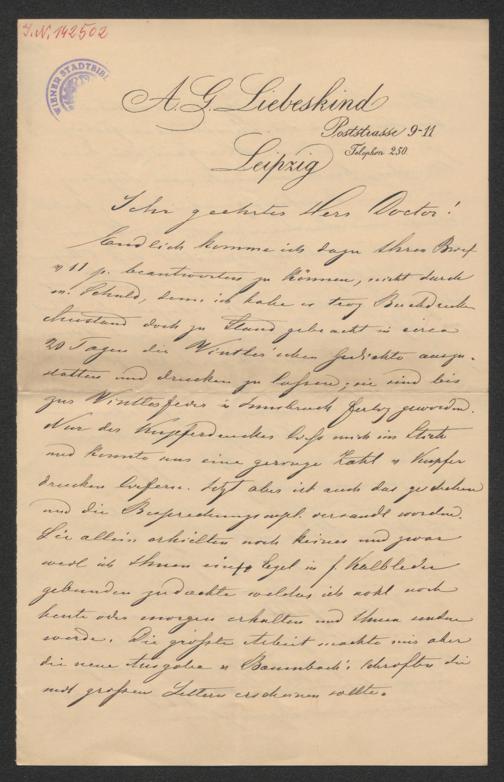 I.N. 142502
WIENER STADTBIBL
A. G. Liebeskind
Poststrasse 9-11
Telephon 250
Leipzig
Sehr geehrter Herr Doctor!
Endlich komme ich dazu Ihren Brief
v 11 p. beantworten zu können, nicht durch
m. Schuld, denn ich habe es trotz Buchdrucker
doch zu Stand gebracht in circa
20 Tagen die Vintler'schen Gedichte auszu-
statten und drucken zu lassen; sie sind bis
zur Vintlerfeier in Innsbruck fertig geworden.
Nur der Kupferdrucker ließ mich im Stich
und konnte nur eine geringe Zahl v Kupfer
drucken liefern. Jetzt aber ist auch das geschehen
und die Besprechungsexpl. versandt worden.
Sie allein erhielten noch keines und zwar
weil ich Ihnen ein Expl in f. Kalbleder
gebunden zudachte welches ich wohl noch
heute oder morgen erhalten und Ihnen senden
werde. Die größte Arbeit machte mir aber
die neue Ausgabe v Baumbach's Schriften die
mit großen Lettern erscheinen sollte.